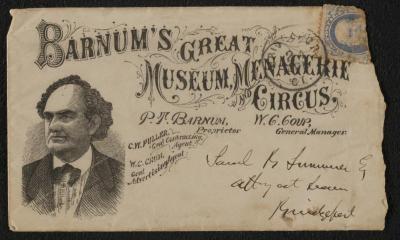 BARNUM'S GREAT
MUSEUM, MENAGERIE
AND CIRCUS,
P. T. BARNUM,
Proprietor
W. C. COUP,
General Manager.
C. W. FULLER,
Genl Contracting
Agent
W. C. CRUM,
Genl
Advertising Agent
Saml B Sumner
atty at
Bridgeport